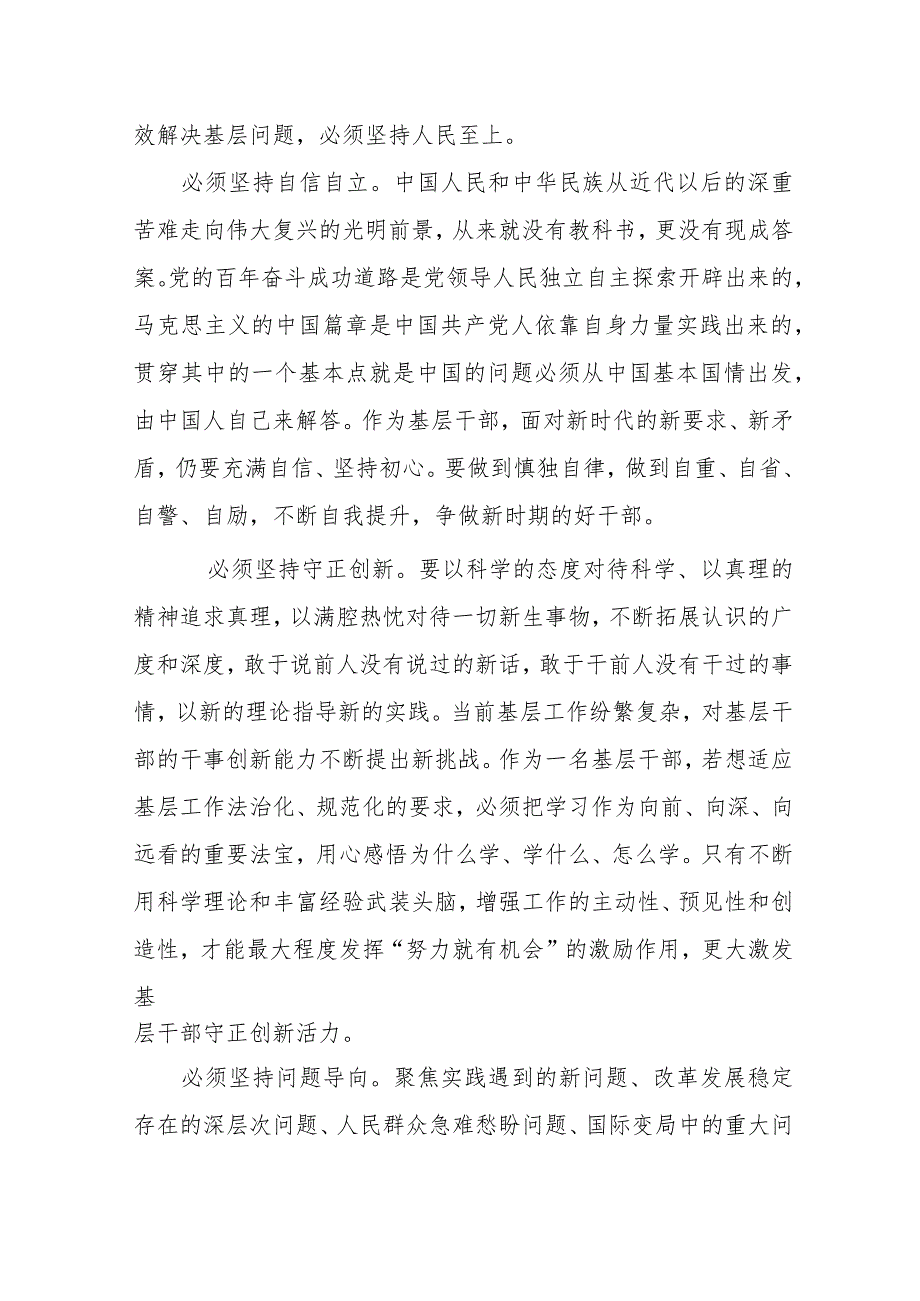 效解决基层问题，必须坚持人民至上。
必须坚持自信自立。中国人民和中华民族从近代以后的深重
苦难走向伟大复兴的光明前景，从来就没有教科书，更没有现成答
案。党的百年奋斗成功道路是党领导人民独立自主探索开辟出来的，
马克思主义的中国篇章是中国共产党人依靠自身力量实践出来的，
贯穿其中的一个基本点就是中国的问题必须从中国基本国情出发，
由中国人自己来解答。作为基层干部，面对新时代的新要求、新矛
盾，仍要充满自信、坚持初心。要做到慎独自律，做到自重、自省、
自警、自励，不断自我提升，争做新时期的好干部。
必须坚持守正创新。要以科学的态度对待科学、以真理的
精神追求真理，以满腔热忱对待一切新生事物，不断拓展认识的广
度和深度，敢于说前人没有说过的新话，敢于干前人没有干过的事
情，以新的理论指导新的实践。当前基层工作纷繁复杂，对基层干
部的干事创新能力不断提出新挑战。作为一名基层干部，若想适应
基层工作法治化、规范化的要求，必须把学习作为向前、向深、向
远看的重要法宝，用心感悟为什么学、学什么、怎么学。只有不断
用科学理论和丰富经验武装头脑，增强工作的主动性、预见性和创
造性，才能最大程度发挥“努力就有机会”的激励作用，更大激发
基
层干部守正创新活力。
必须坚持问题导向。聚焦实践遇到的新问题、改革发展稳定
存在的深层次问题、人民群众急难愁盼问题、国际变局中的重大问